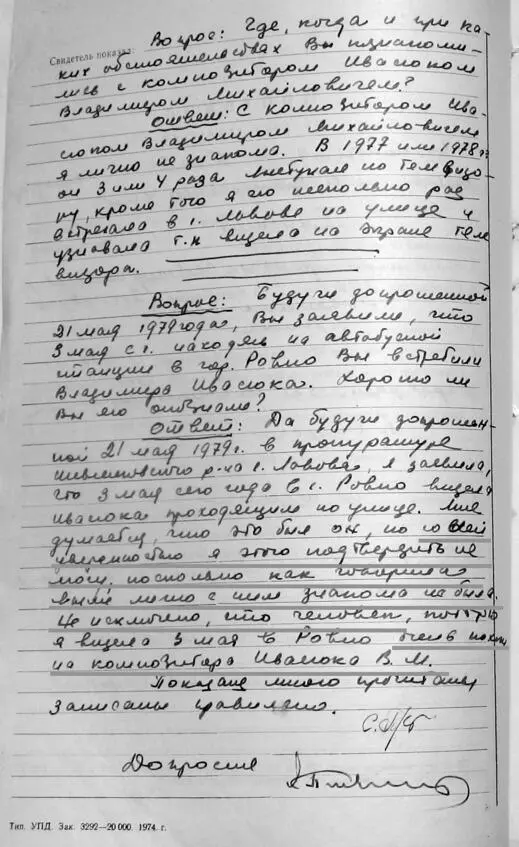 Вопрос: Где, когда и при ка-
Свидетель показал:
ких обстоятельствах Вы познакоми-
лись с композитором Ивасюком
Владимиром Михайловичем?
Ответ: С композитором Ива-
сюком Владимиром Михайловичем
я лично не знакома. В 1977 или 1978 г.
он 3 или 4 раза выступал по телевизо-
ру, кроме того я его несколько раз
встречала в г. Львове на улице и
узнавала т.к видела на экране теле
визора.
Вопрос: Будучи допрошенной
21 мая 1979 года, Вы заявили, что
3 мая с.г. находясь на автобусной
станции в гор. Ровно Вы встретили
Владимира Ивасюка. Хорошо ли
Вы его опознали?
Ответ: Да будучи допрошен-
ной 21 мая 1979г. в прокуратуре
р-на г. Львова, я заявила,
что 3 мая сего года в г. Ровно видела
Ивасюка проходящим по улице. Мне
думается, что это был он, но со всей
уверенностью я этого подтвердить не
могу, поскольку как говорила
выше лично с ним знакома не была.
Не исключено, что человек, которого
я видела 3 мая в Ровно очень похож
на композитора Ивасюка В.М.
Показания мною прочитаны
записаны правильно.
Допросил
Тип. УПД. Зак. 3292—20 000. 1974. г.